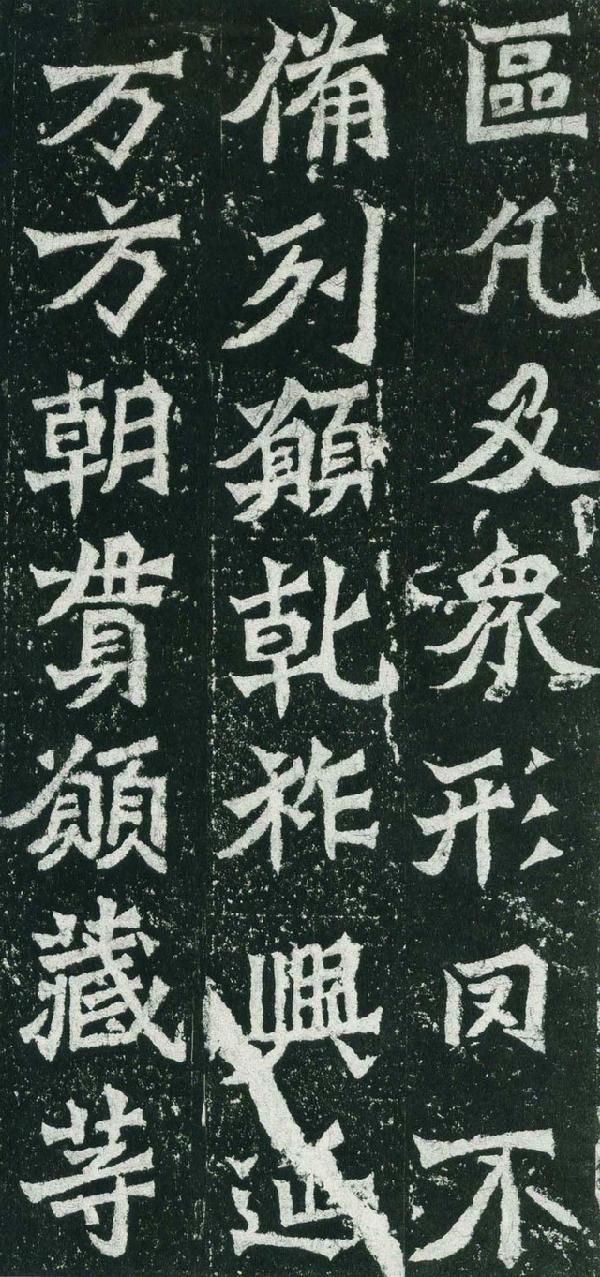 區凡及衆形罔不
備列願乾祚興延
万方朝貫願藏等